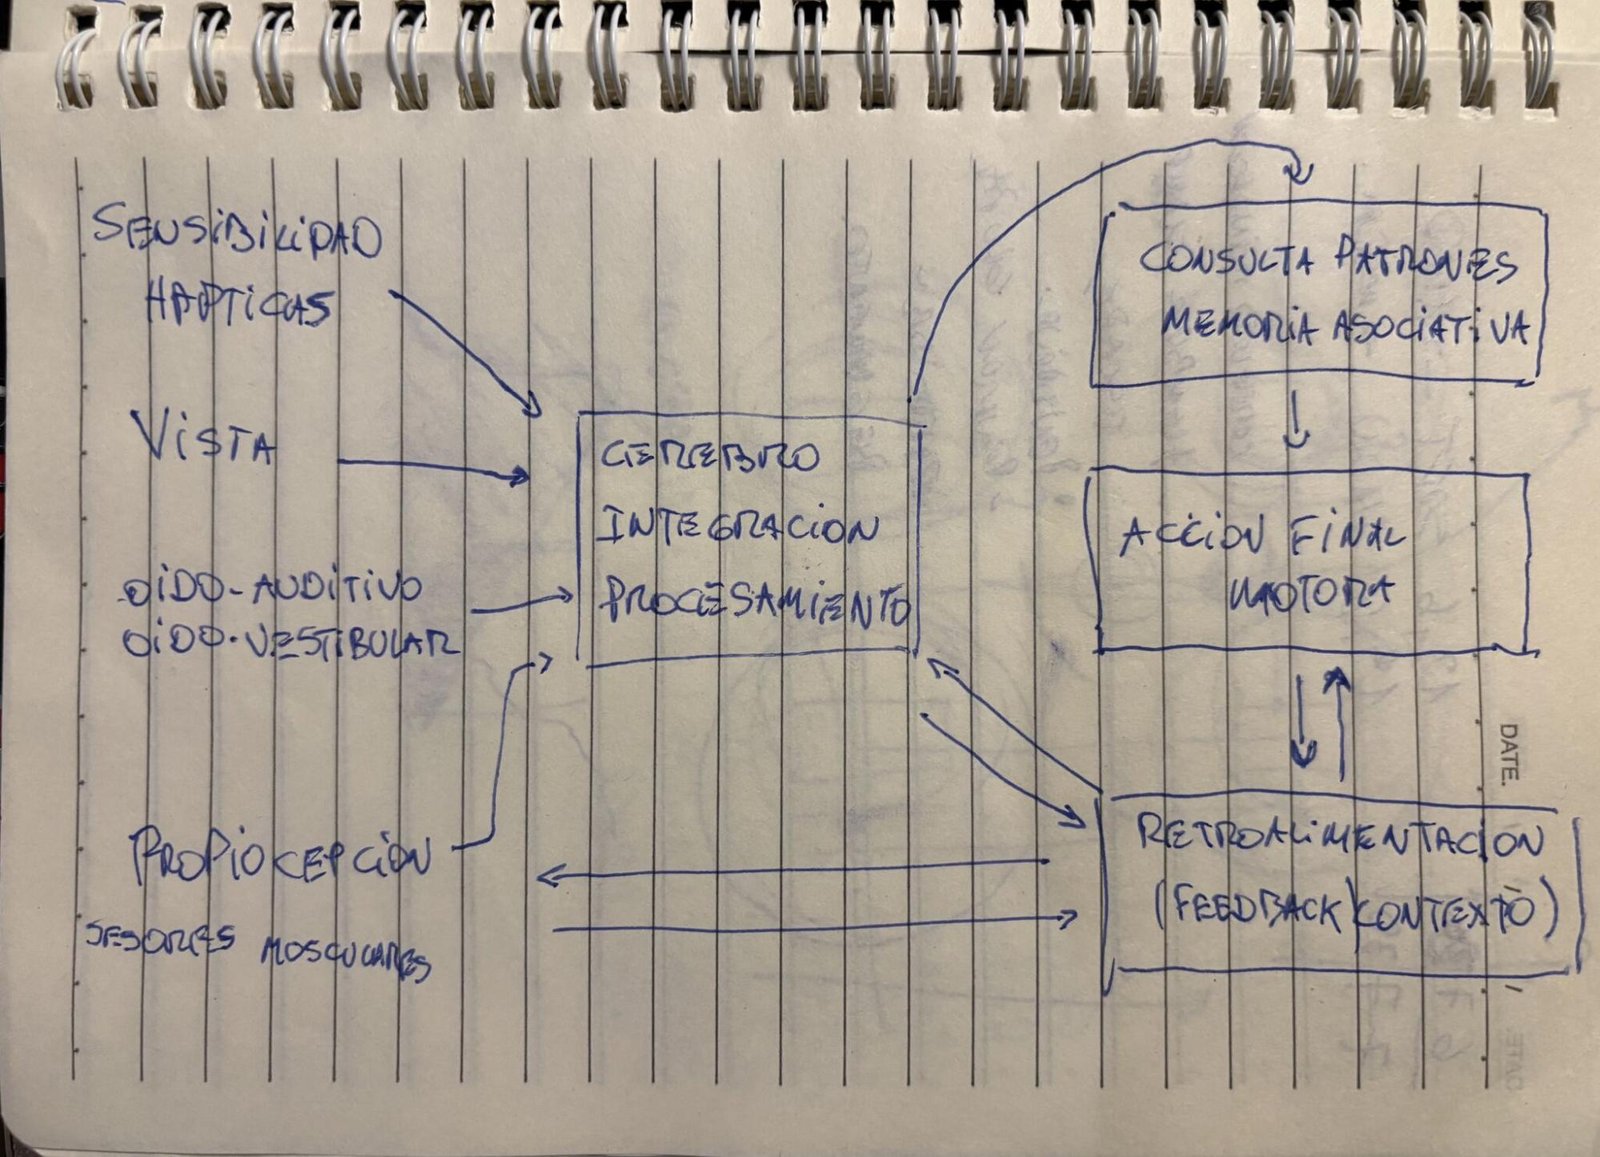 SENSIBILIDAD
HAPTICAS
VISTA
OIDO-AUDITIVO
OIDO-VESTIBULAR
PROPIOCEPCIÓN
SESORES MOSCULARES
CEREBRO
INTEGRACION
PROCESAMIENTO
CONSULTA PATRONES
MEMORIA ASOCIATIVA
ACCION FINAL
MOTORA
RETROALIMENTACION
(FEEDBACK/CONTEXTO)
DATE.